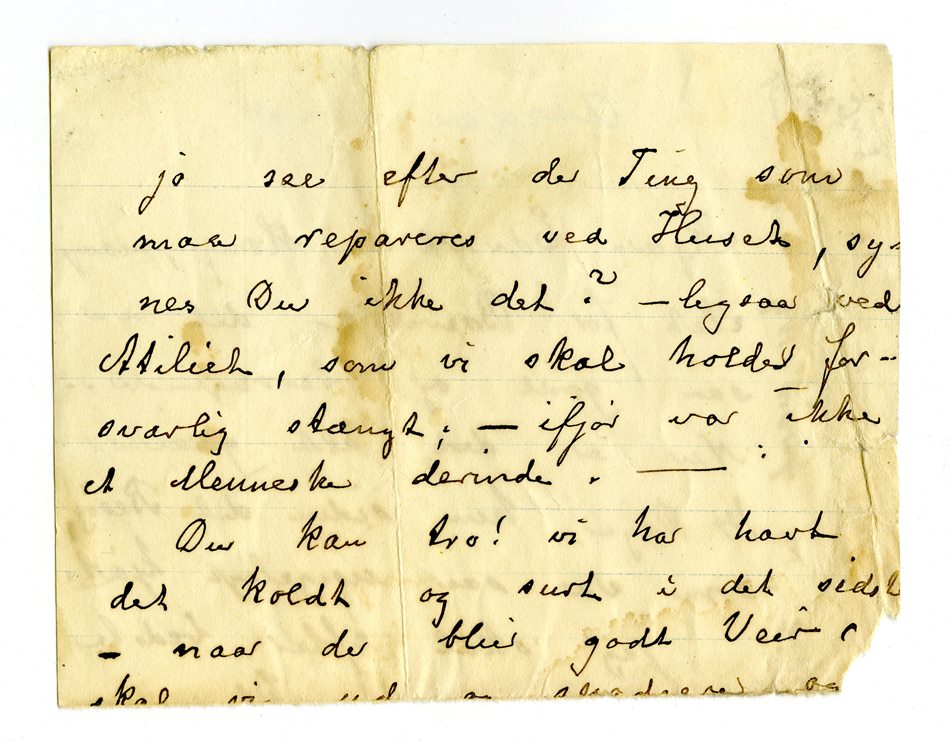 jo see efter de Ting som
maa repareres ved Huset, sy-
nes Du ikke det? – ligsaa ved
Atiliet, som vi skal holde for-
svarlig stængt; – ifjor var ikke
et Menneske derinde. –
Du kan tro! vi har havt
det koldt og surt i det sidst
– naar de blir godt Veir
skal vi ud og og